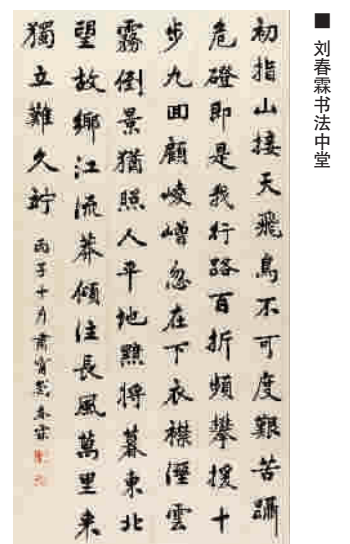 ■ 刘春霖书法中堂
初指山接天飛鳥不可度艱苦躡
危磴即是我行路百折頻攀援十
步九回顧崚嶒忽在下衣襟溼雲
霧倒景猶照人平地黯將暮東北
望故鄉江流莽傾注長風萬里来
獨立難久竚
丙子十月肅甯劉春霖